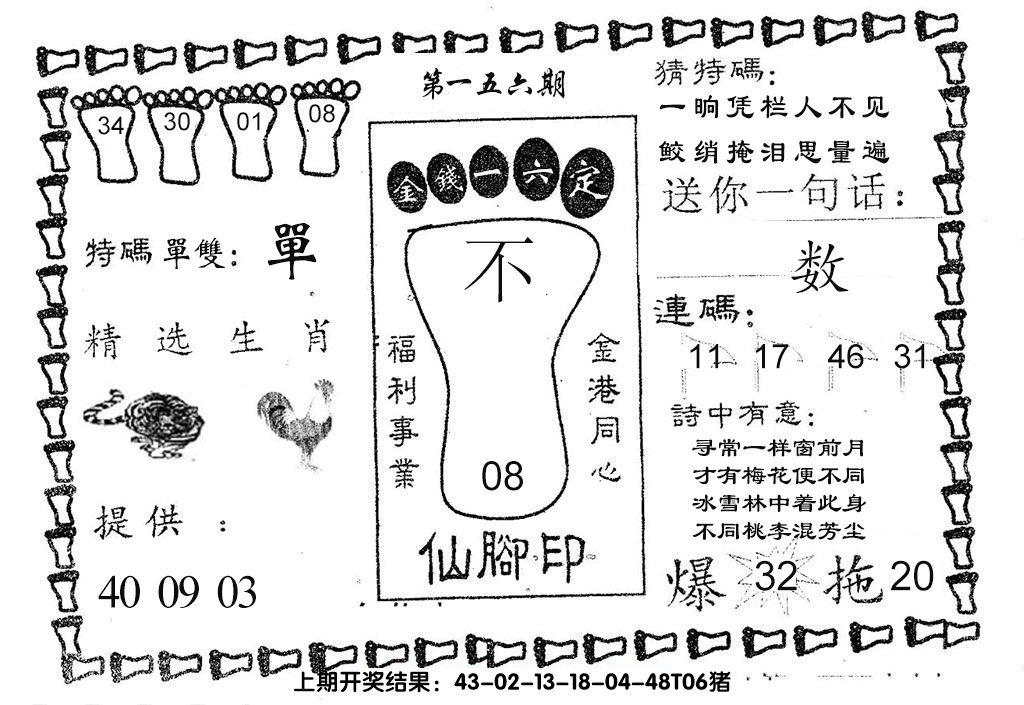 第一五六期
34 30 01 08
特碼單雙：單
精选生肖
提供：
40 09 03
金錢一六定
不
福利事業
金港同心
08
仙腳印
猜特碼：
一晌凭栏人不见
鲛绡掩泪思量遍
送你一句话：
数
連碼：
11 17 46 31
詩中有意：
寻常一样窗前月
才有梅花便不同
冰雪林中着此身
不同桃李混芳尘
爆 32 拖 20
上期开奖结果：43-02-13-18-04-48T06猪